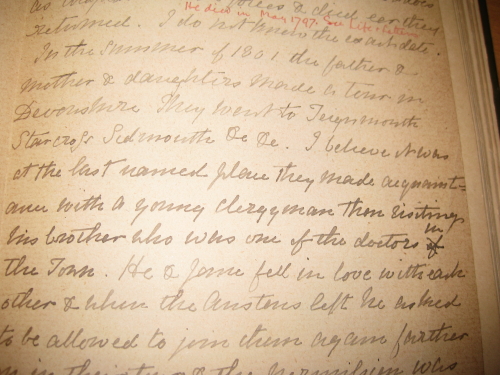 & died ear they
He died in May 1797. See Life & Letters
returned. I do not know the exact date.
In the Summer of 1801 the father &
mother & daughters made a tour in
Devonshire. They went to Teignmouth
Starcross Sidmouth &c &c. I believe it was
at the last named place they made acquaint-
ance with a young clergyman then visiting
his brother who was one of the doctors in
the Town. He & Jane fell in love with each
other & when the Austens left he asked
to be allowed to join them again further
on in their tour & the permission was